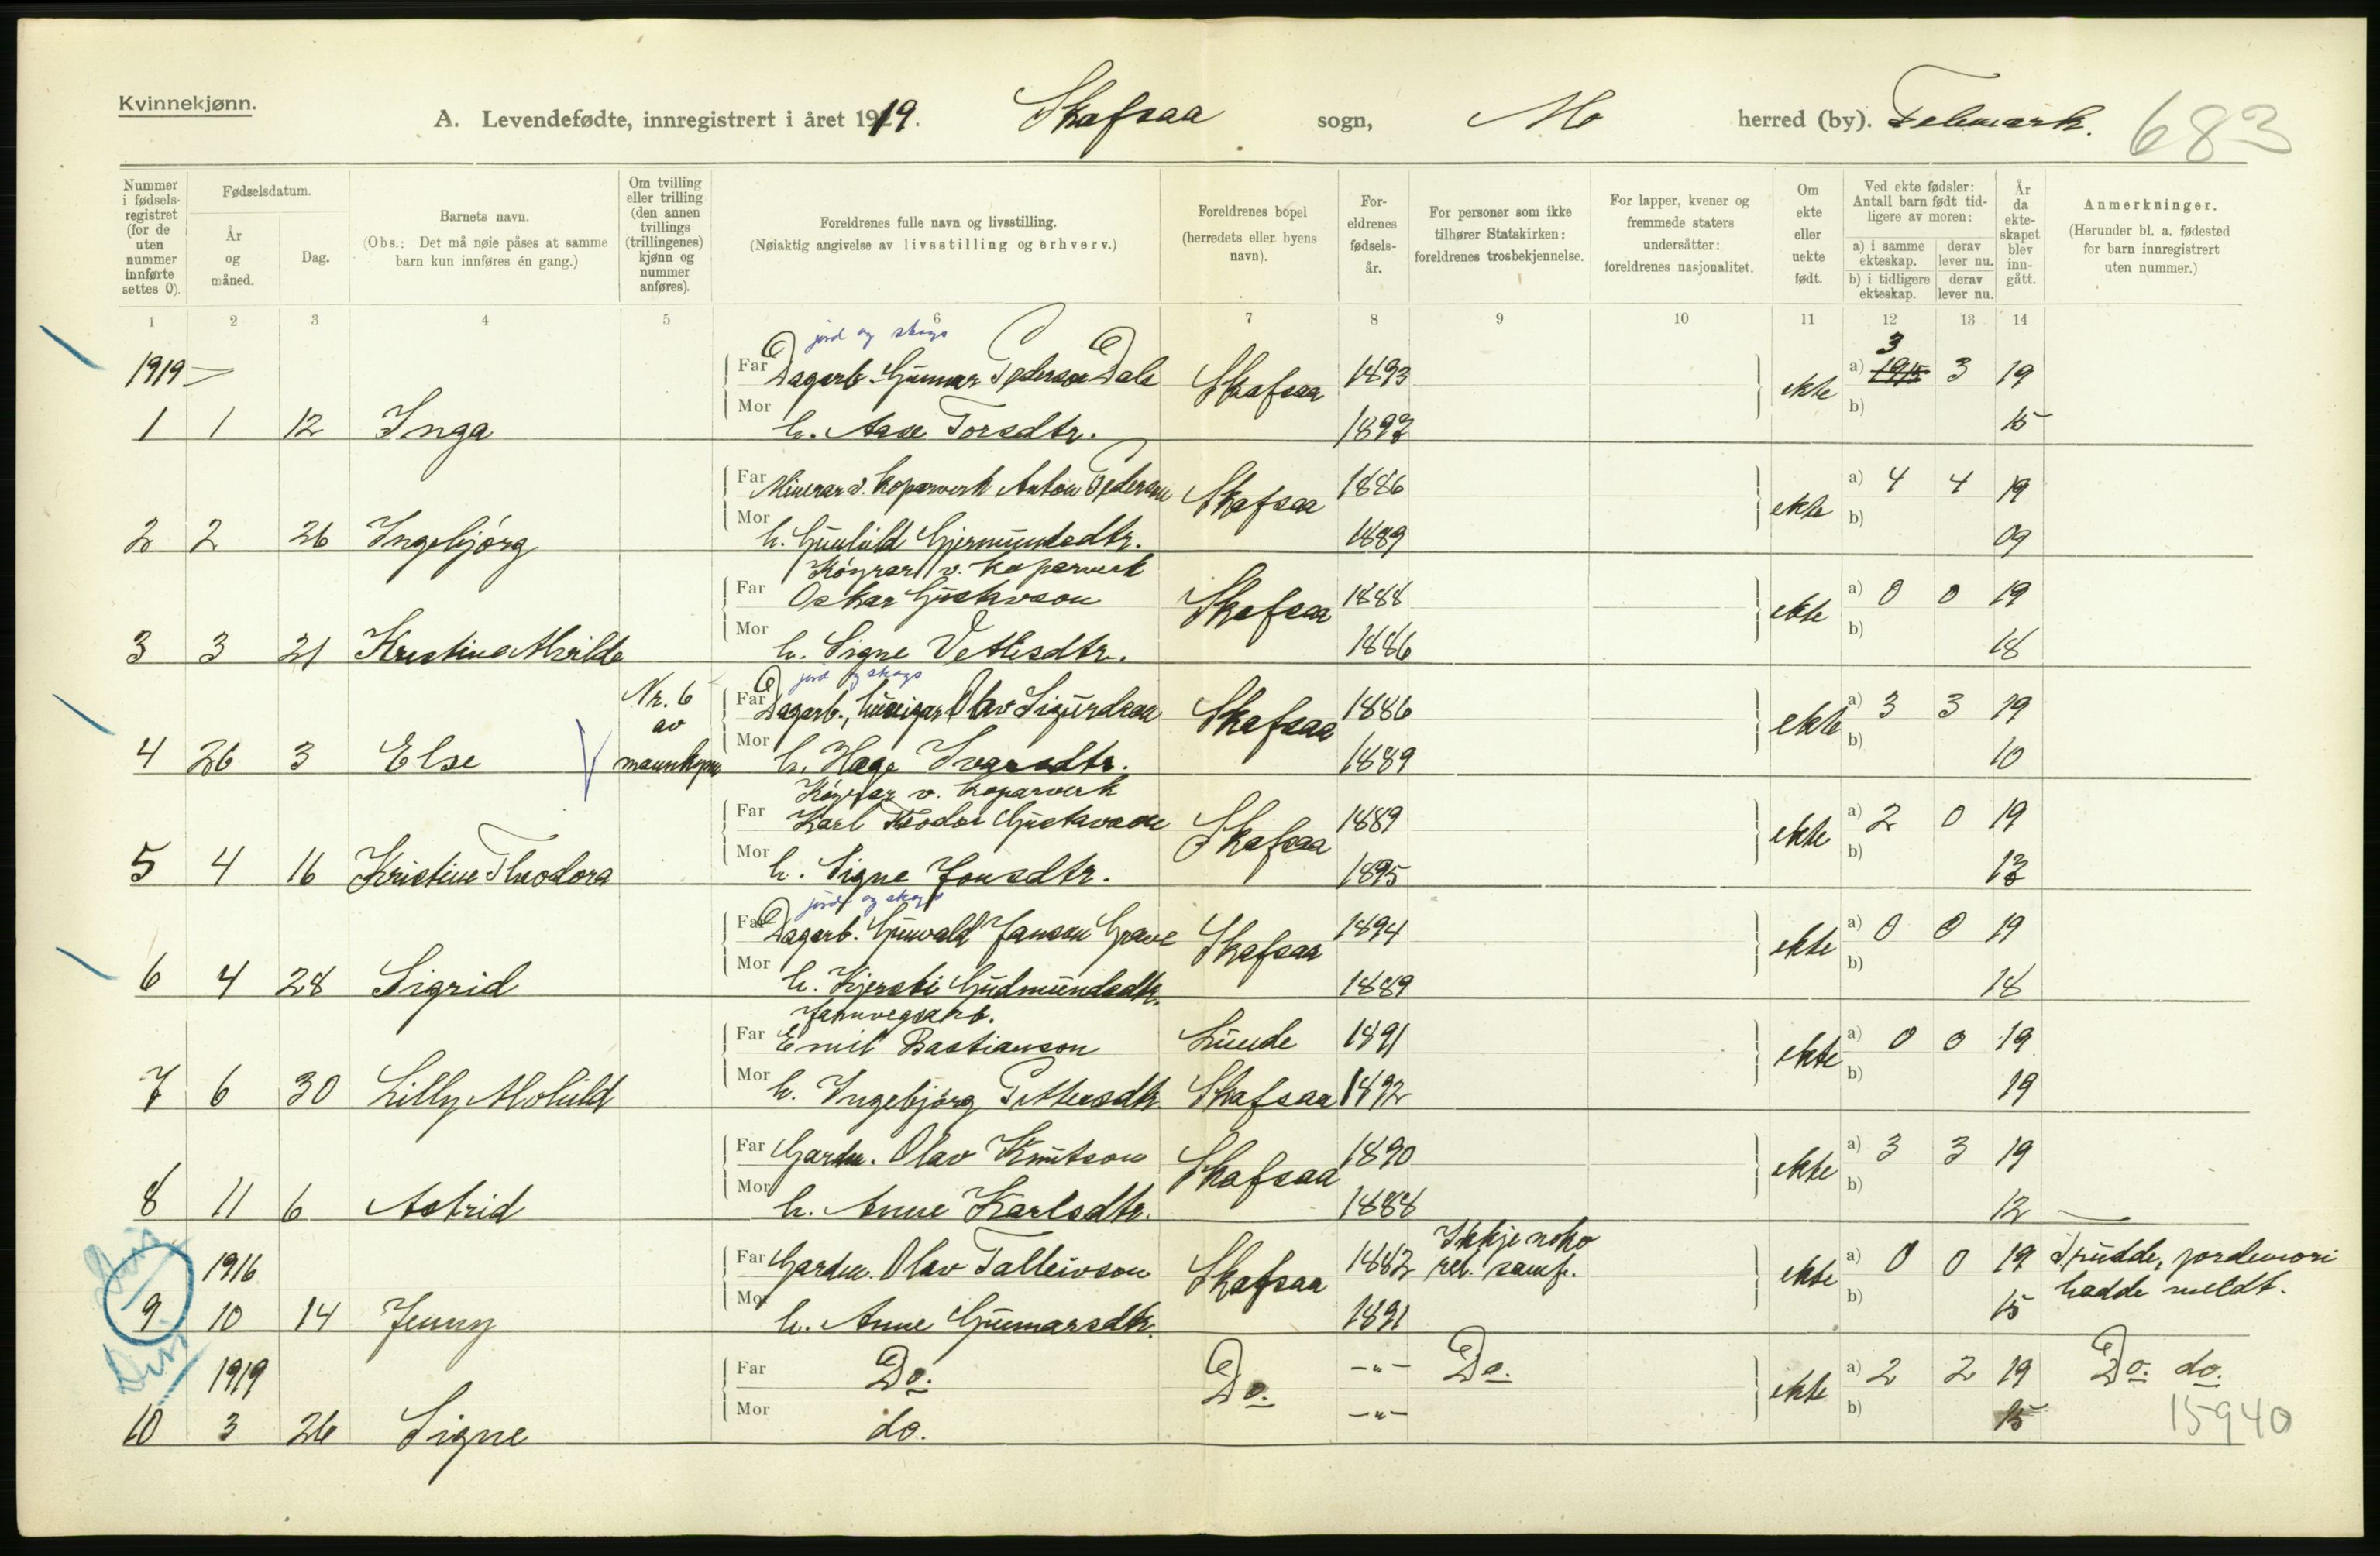 Kvinnekjønn.
A. Levendefødte, innregistrert i året 1919. Skafsaa sogn, Mo herred (by). Telemark. 683
Nummer i fødsels-registret (for de uten nummer innførte settes 0).
Fødselsdatum.
År og måned.
Dag.
Barnets navn.
(Obs.: Det må nøie påses at samme barn kun innføres én gang.)
Om tvilling eller trilling (den annen tvillings (trillingenes) kjønn og nummer anføres).
Foreldrenes fulle navn og livsstilling.
(Nøiaktig angivelse av livsstilling og erhverv.)
Foreldrenes bopel (herredets eller byens navn).
For-eldrenes fødsels-år.
For personer som ikke tilhører Statskirken: foreldrenes trosbekjennelse.
For lapper, kvener og fremmede staters undersåtter: foreldrenes nasjonalitet.
Om ekte eller uekte født.
Ved ekte fødsler: Antall barn født tid-ligere av moren:
a) i samme ekteskap. derav lever nu.
b) i tidligere ekteskap. derav lever nu.
År da ekte-skapet blev inn-gått.
Anmerkninger.
(Herunder bl. a. fødested for barn innregistrert uten nummer.)
1 2 3 4 5 6 7 8 9 10 11 12 13 14
jord og skogs
1919 Far Dagarb. Gunnar Pederson Dale Skafsaa 1893 ekte a) 1915 3 3 19
1 1 12 Inga Mor h. Aase Torsdtr. 1897 b) 15
Far Minerar v. Koparverk Anton Pederson Skafsaa 1886 ekte a) 4 4 19
2 2 26 Ingebjörg Mor h. Gunhild Gjermundsdtr. 1889 b) 09
Köyrar v. Koparverk
Far Oskar Gustavson Skafsaa 1888 ekte a) 0 0 19
3 3 21 Kristine Alvilde Mor h. Signe Vetlesdtr. 1886 b) 18
jord og skogs
Nr. 6 av mannkjønn Far Dagarb., Olav Sigurdson Skafsaa 1886 ekte a) 3 3 19
4 26 3 Else Mor h. Hæge Ivarsdtr. 1889 b) 10
Köyrar v. Koparverk
Far Karl Teodor Gustavson Skafsaa 1889 ekte a) 2 0 19
5 4 16 Kristine Theodora Mor h. Signe Jonsdtr. 1895 b) 13
jord og skogs
Far Dagarb. Gunvald Janson Grave Skafsaa 1894 ekte a) 0 0 19
6 4 28 Sigrid Mor h. Kjersti Gudmundsdtr. 1889 b) 18
Jarnvegsarb.
Far Emil Bastianson Lunde 1891 ekte a) 0 0 19
7 6 30 Lilly Alvhild Mor h. Ingebjörg Pettersdtr. Skafsaa 1892 b) 19
Far Gardm. Olav Knutson Skafsaa 1890 ekte a) 3 3 19
8 11 6 Astrid Mor h. Anne Karlsdtr. 1888 b) 12
1916 Far Gardm. Olav Talleivson Skafsaa 1882 Ikkje noko rel. samf. ekte a) 0 0 19 Trudde, jordemori hadde meldt.
9 10 14 Jenny Mor h. Anne Gunnarsdtr. 1891 b) 15
Diss.
1919 Far Do. Do. -"- Do. ekte a) 2 2 19 Do. do.
10 3 26 Signe Mor do. -"- b) 15 15940